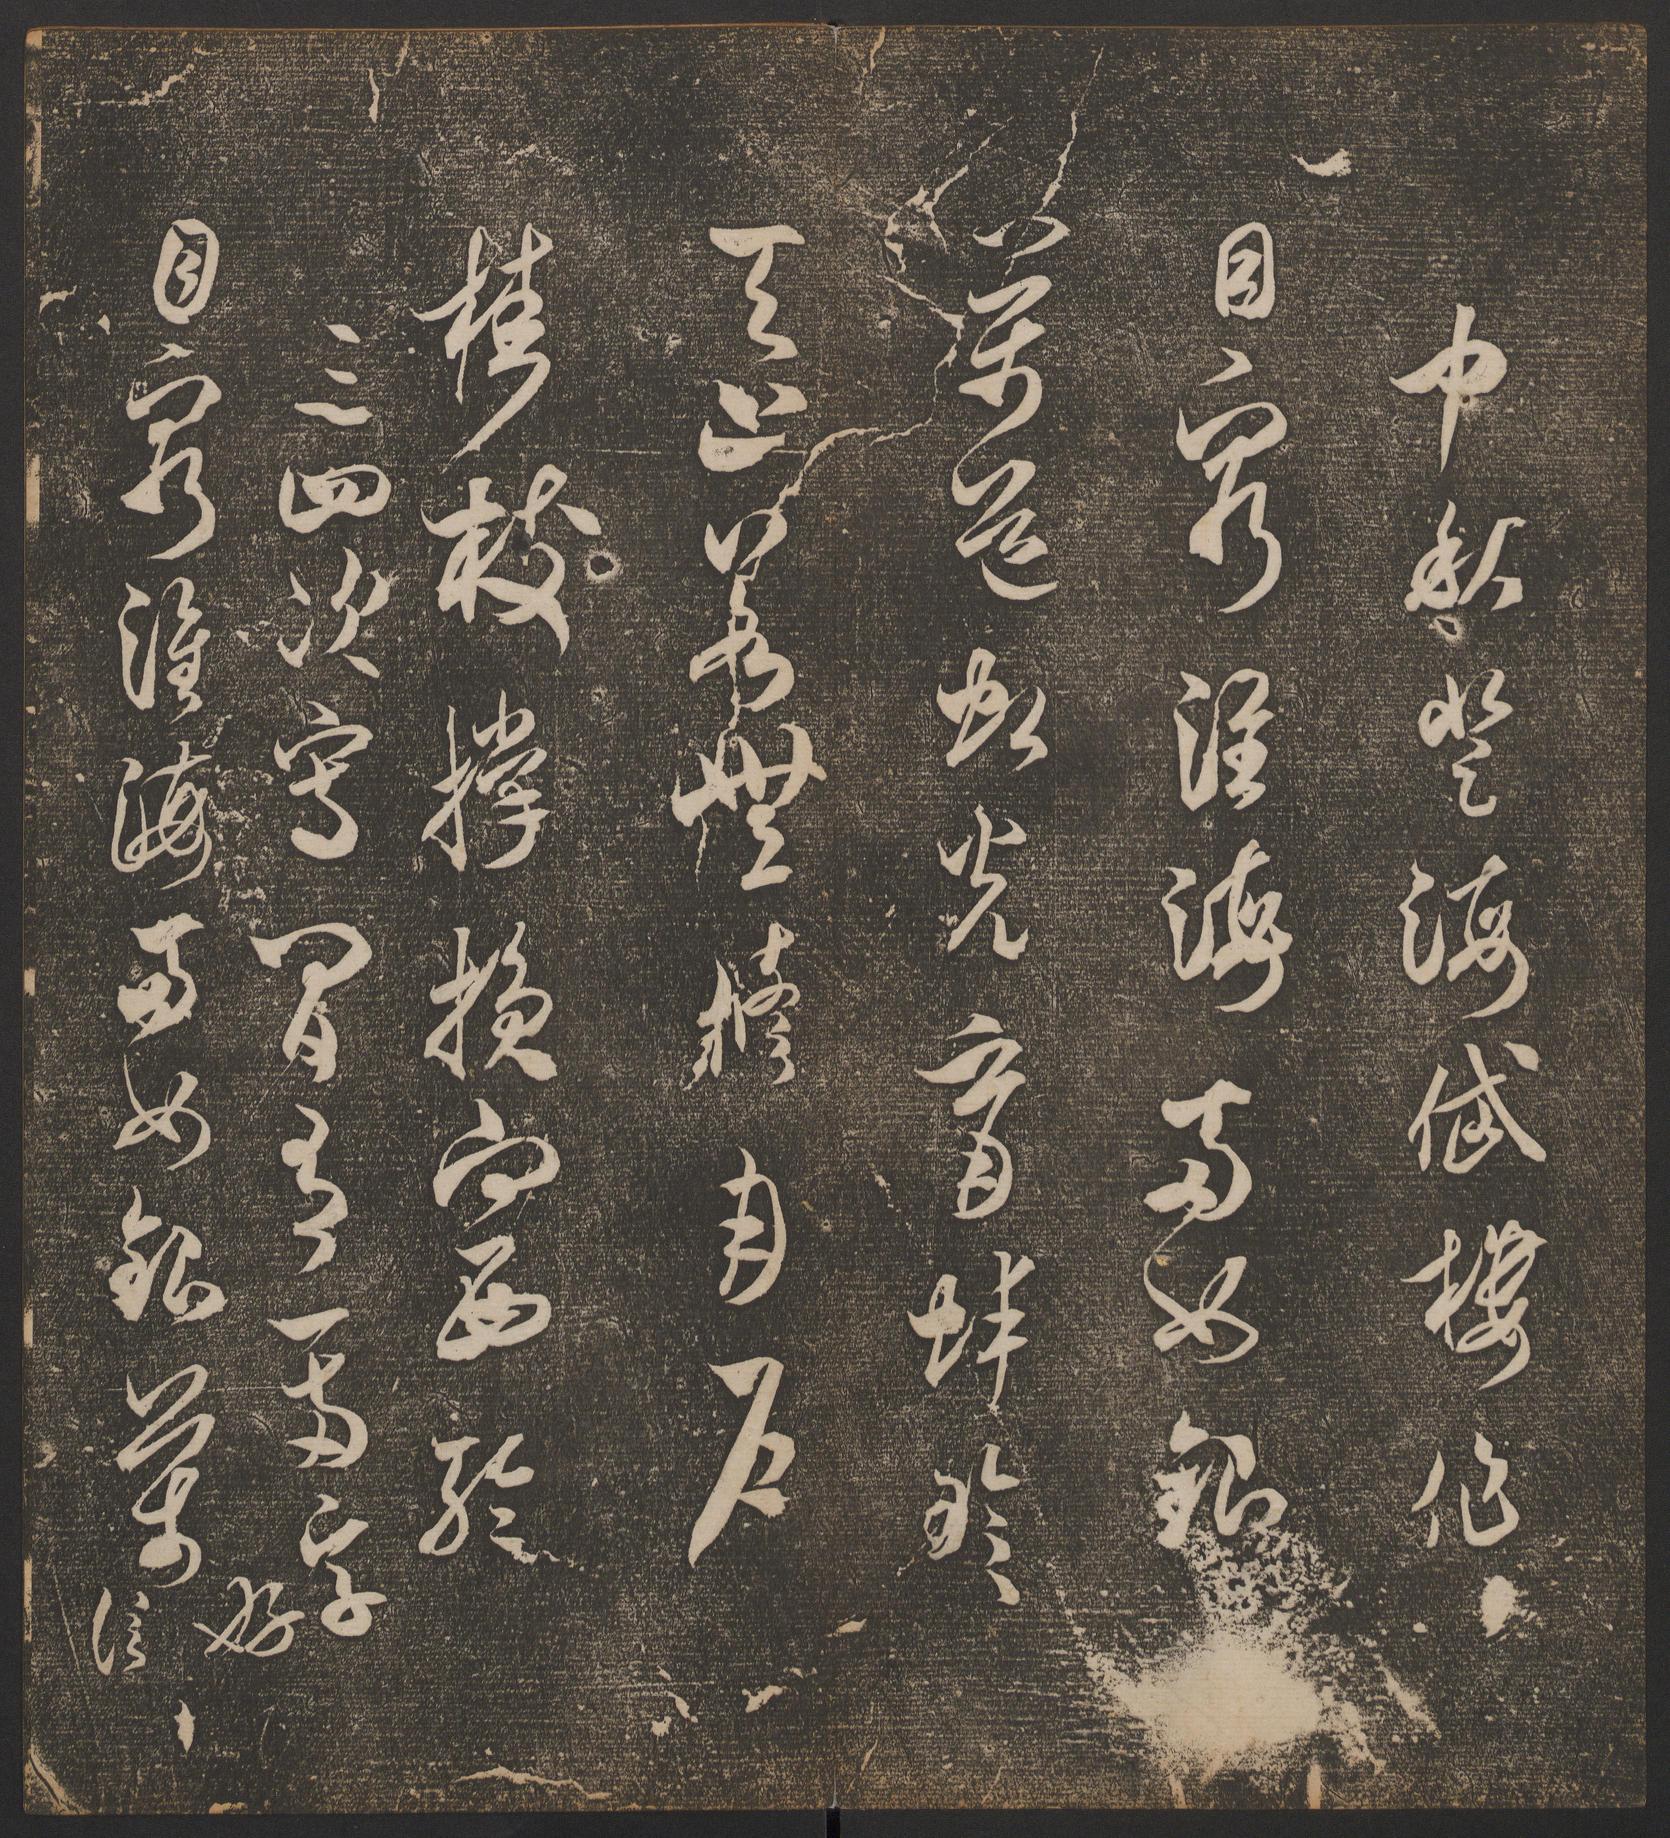 中秋登海岱樓作
目窮淮海兩如銀
萬道虹光育蚌珍
天上若無修月戶
桂枝撐損向西輪
三四次寫間有一兩字好
目窮淮海兩如銀萬
信